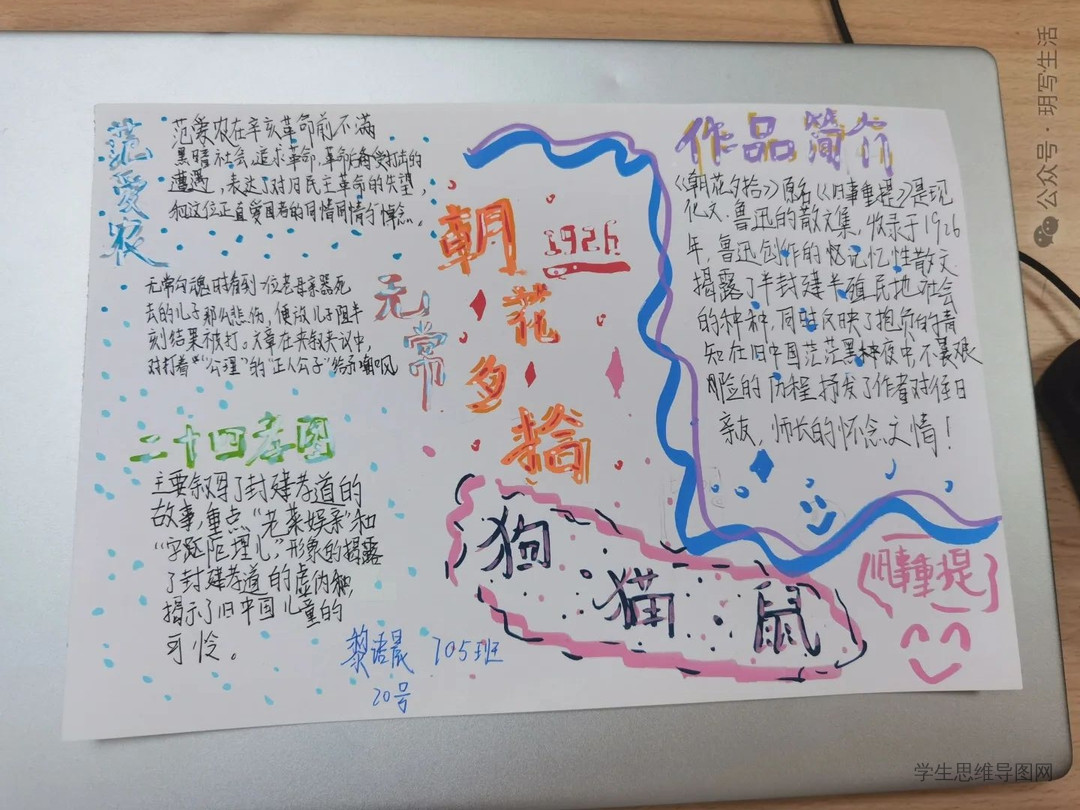 范爱农
范爱农在辛亥革命前不满
黑暗社会、追求革命,革命后备受打击的
遭遇,表达了对旧民主革命的失望,
和这位正直爱国者的同情同情与悼念。
无常
无常勾魂时看到一位老母亲死
去的儿子那么悲伤,便放儿子阳半
刻结果被打。文章在夹叙夹议中,
对打着““公理”的“正人公子”给予嘲讽
二十四孝图
主要叙写了封建孝道的
故事,重点“老莱娱亲”和
形象的揭露
了封建孝道的虚伪和
揭示了旧中国儿童的
可怜。
朝
花
夕
拾
1926
狗
猫
鼠
黎语晨 705班
20号
作品简介
《朝花夕拾》原名《旧事重提》是现
代文.鲁迅的散文集,收录于1926
年,鲁迅创作的 忆记忆性散文
揭露了半封建半殖民地社会
的种种,同时反映了抱负的青
知在旧中国茫茫黑 夜中,不畏艰
险的历程,抒发了作者对往日
亲友,师长的怀念之情!
旧事重提
公众号·玥写生活
学生思维导图网